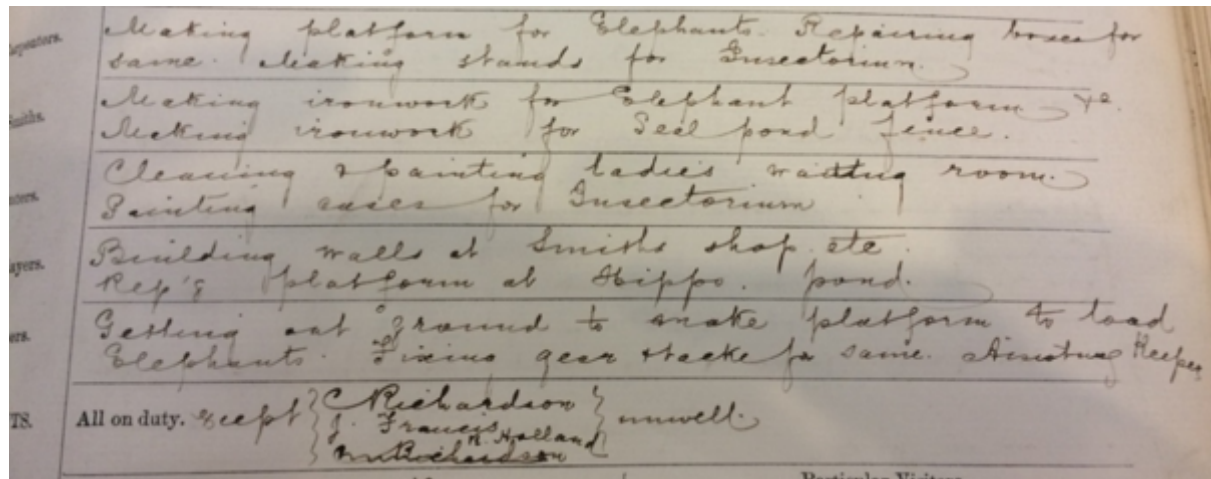 Carpenters. Making platform for Elephants. Repairing boxes for
same. Making stands for Insectorium.
Smiths. Making ironwork for Elephant platform &c.
Making ironwork for Seal pond fence.
Cleaning & painting ladies waiting room.
Painting cases for Insectorium
Building walls at Smiths shop etc.
Rep'g platform at Hippo. pond.
Getting out ground to make platform to load
Elephants. Fixing gear for same. Assisting Keepers
All on duty. Except C Richardson
J. Francis unwell.
H. Holland
Wm Richardson
Particular Visitors